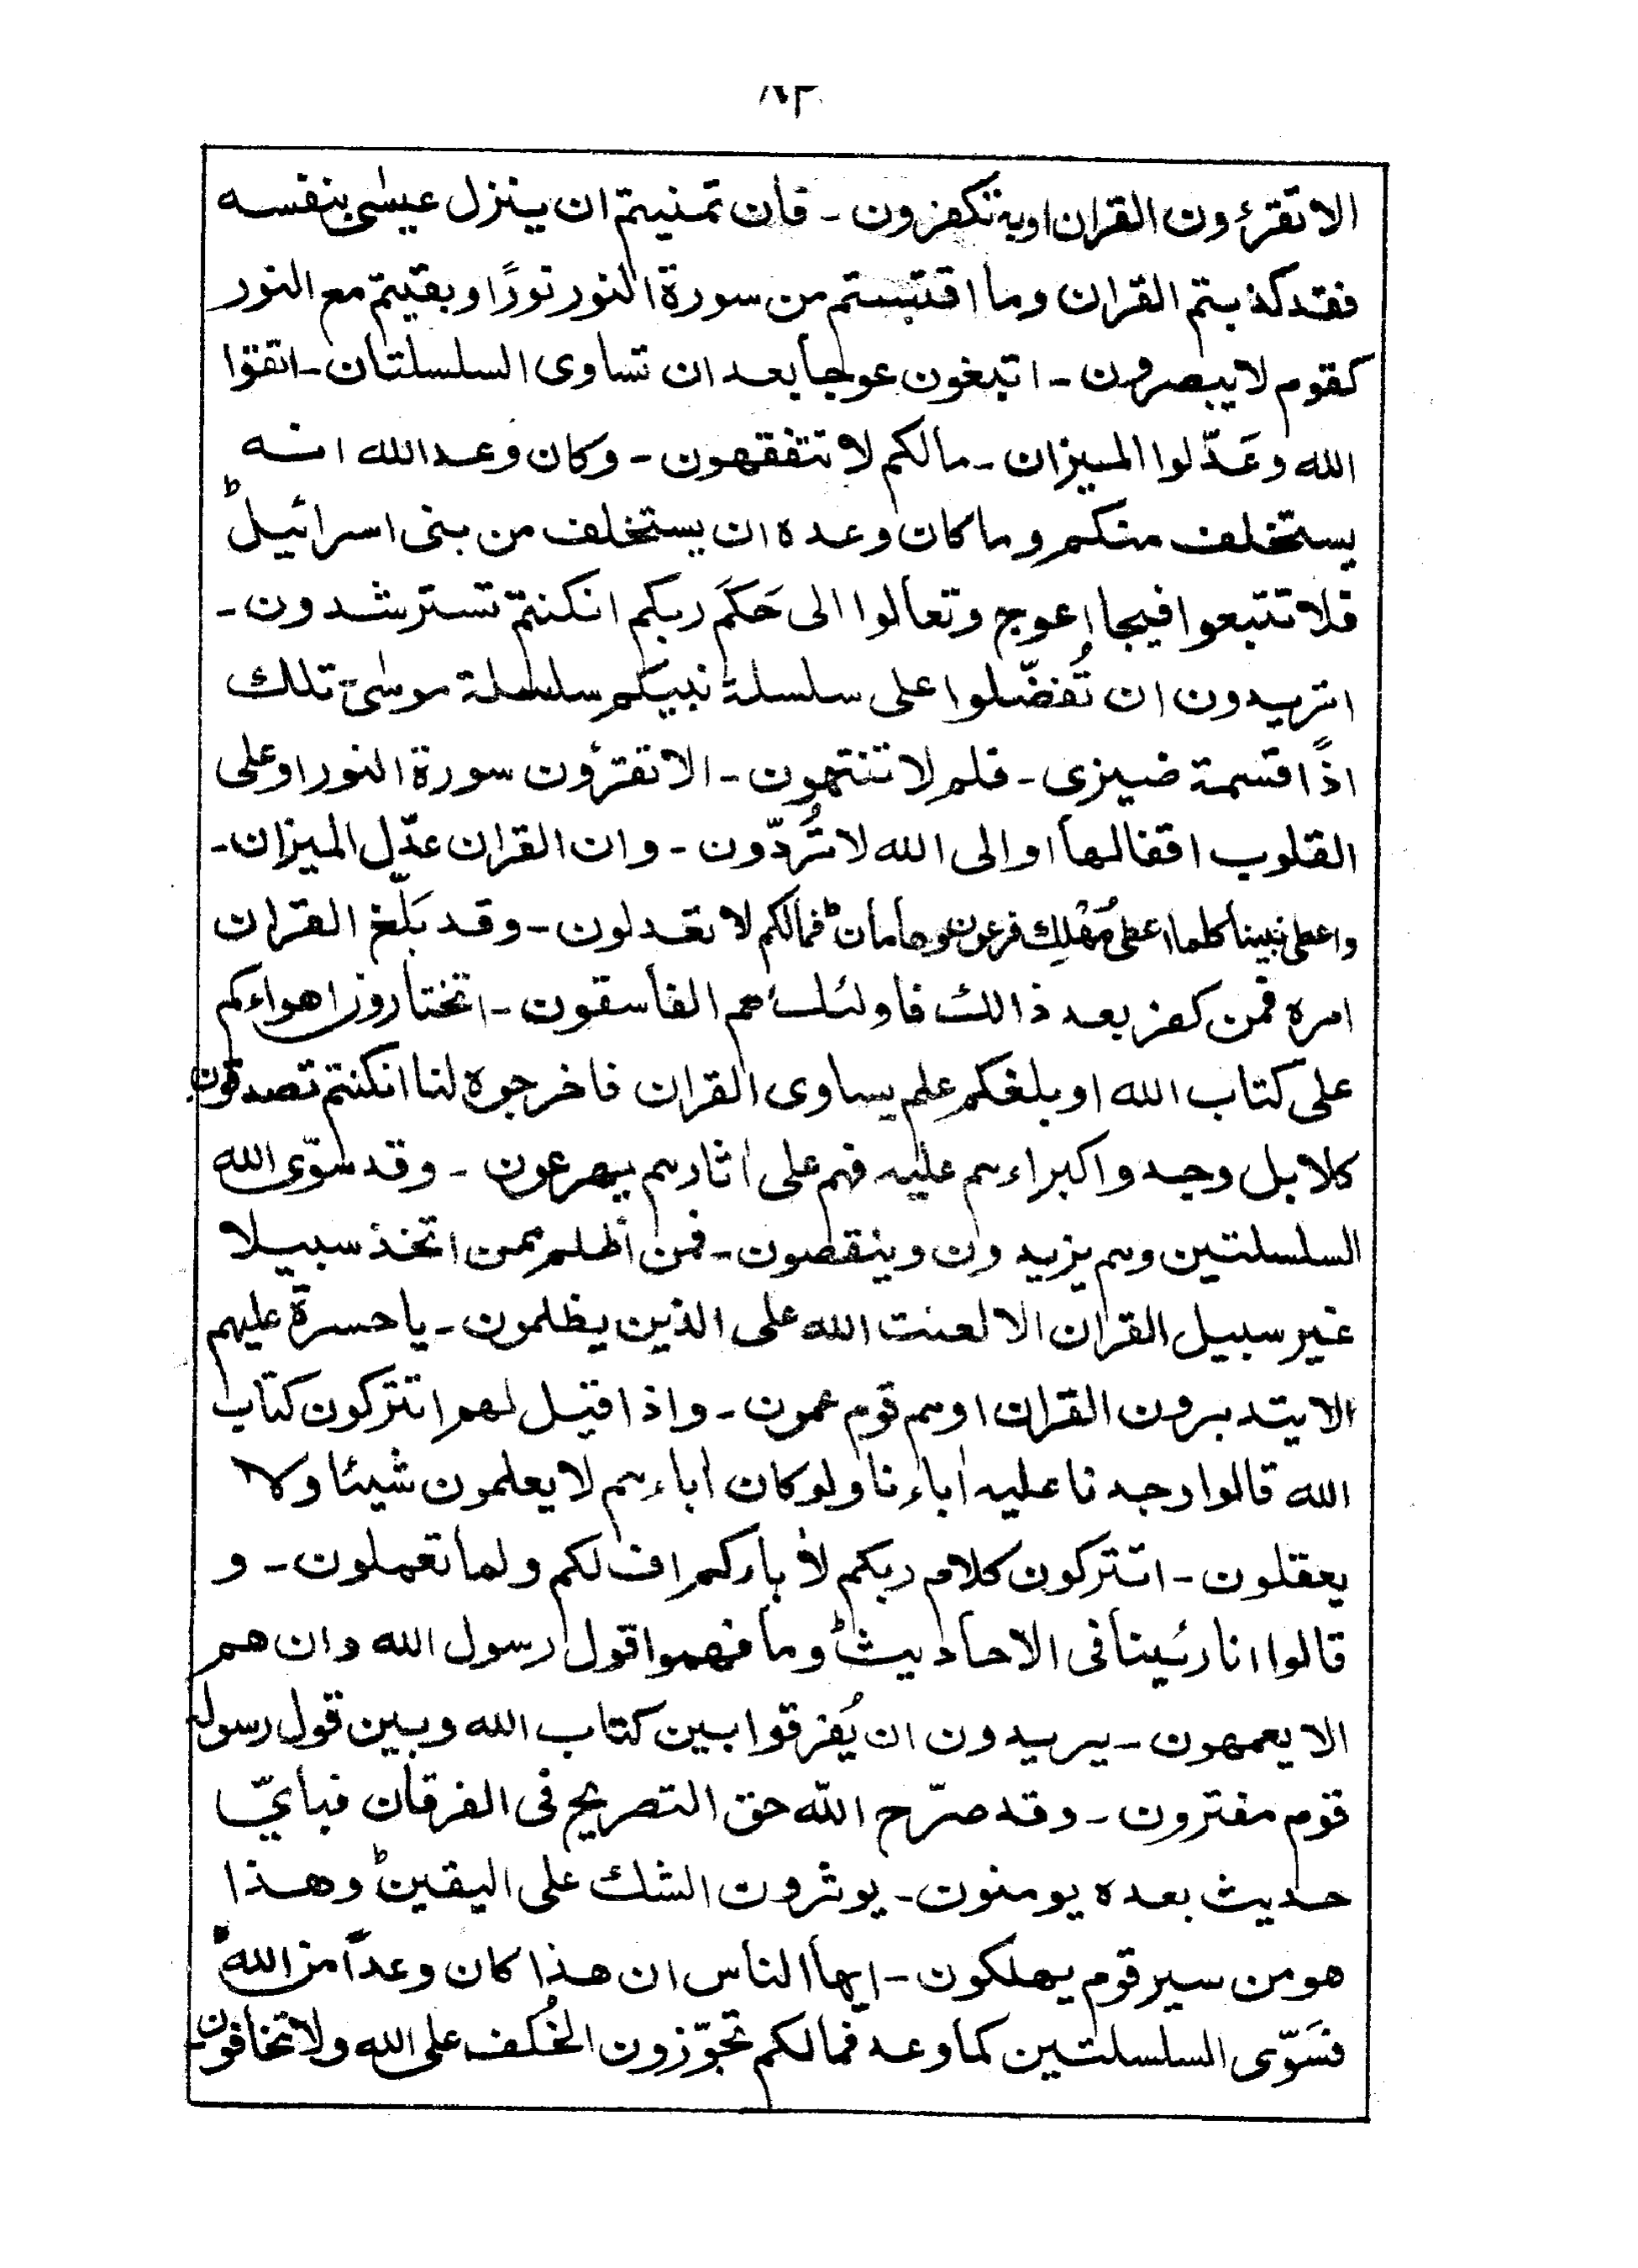 ۸۳
الا تقرءون القران او به تكفرون - فان تمنيتم ان ينزل عيسىٰ بنفسه
فقد كذبتم القران وما اقتبستم من سورة النور نورًا وبقيتم مع النور
كقوم لا يبصرون - اتبغون عوجا بعد ان تساوى السلسلتان - اتقوا
الله وعَدّلوا الميزان - مالكم لا تتفقهون - وكان وعد الله انه
يستخلف منكم وما كان وعده ان يستخلف من بنى اسرائيل ط
فلا تتبعوا فيجا اعوج وتعالوا الى حَكَم ربكم انكنتم تسترشدون -
اتريدون ان تُفضّلوا على سلسلة نبيكم سلسلة موسىٰ تلك
اذًا قسمة ضيزى - فلم لا تنتهون - الا تقرؤن سورة النور او على
القلوب اقفالها او الى الله لا تُردّون - وان القران عدّل الميزان -
واعطى نبينا كلما اعطى مُهْلِك فرعون وهامان ط فمالكم لا تعدلون - وقد بَلّغ القران
امره فمن كفر بعد ذالك فاولئك هم الفاسقون - اتختارون اهواءكم
على كتاب الله او بلغكم علم يساوى القران فاخرجوه لنا انكنتم تصدقون
كلا بل وجدوا كبراءهم عليه فهم على اثارهم يهرعون - وقد سوّى الله
السلسلتين وهم يزيدون وينقصون - فمن اظلم ممن اتخذ سبيلا
غير سبيل القران الا لعنت الله على الذين يظلمون - يا حسرة عليهم
الا يتدبرون القران او هم قوم عمون - واذا قيل لهم اتتركون كتاب
الله قالوا وجدنا عليه اٰباءنا ولو كان اٰباءهم لا يعلمون شيئا ولا
يعقلون - اتتركون كلام ربكم لاٰباركم اف لكم ولما تعملون - و
قالوا انا رئينا فى الاحاديث ط وما فهموا قول رسول الله وان هم
الا يعمهون - يريدون ان يُفرقوا بين كتاب الله وبين قول رسوله
قوم مفترون - وقد صرّح الله حق التصريح فى الفرقان فبأيّ
حديث بعده يومنون - يوثرون الشك على اليقين ط وهذا
هو من سير قوم يهلكون - ايها الناس ان هذا كان وعدًا من الله
فسَوّى السلسلتين كما وعد فمالكم تجوّزون الخُلف على الله ولا تخافون